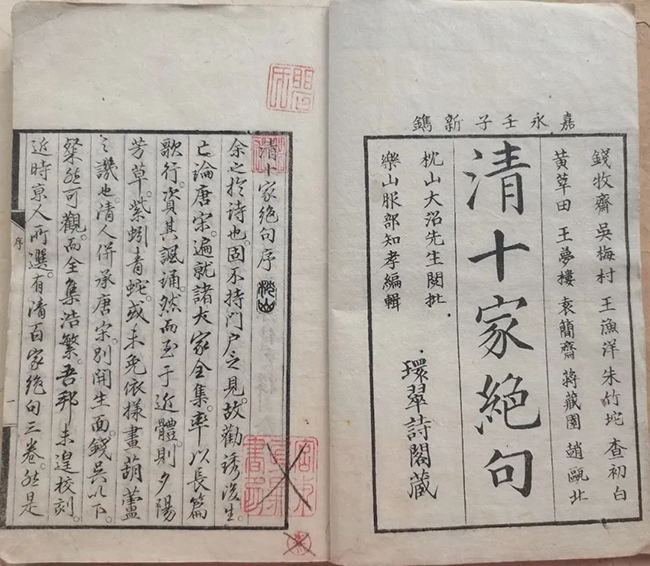 嘉永壬子新鐫
錢牧齋 吳梅村 王漁洋 朱竹垞 查初白
黃草田 王夢樓 袁簡齋 蔣藏園 趙甌北
清十家絕句
枕山大沼先生閱批
樂山服部知孝編輯
環翠詩閣藏
清十家絕句序
余之於诗也。固不持門户之見。故勸誘後生。
亡論唐宋。遍就諸大家全集。率以長篇
歌行。資其諷誦。然而至于近體。則夕陽
芳草。紫蚓青蛇。或未免依様畫葫蘆
之譏也。清人併承唐宋。別開生面。錢吳以下。
粲然可觀。而全集浩繁。吾邦未遑校刻。
近時京人所選。有清百家絕句三卷。然是
序
一